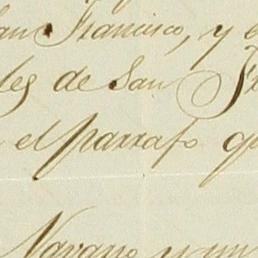 San Francisco, y e
les de San Fr
el parrafo q
Navarro y un